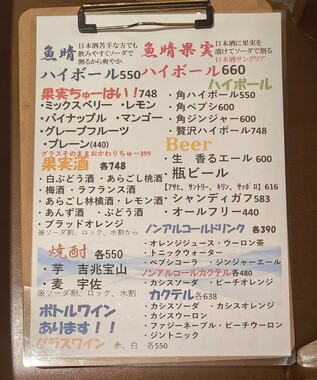 魚晴
日本酒苦手な方でも
飲みやすくソーダで
割るから爽やか
ハイボール550
魚晴果実
日本酒に果実を
漬けてソーダで割る
日本酒サングリア
ハイボール660
果実ちゅーはい!748
・ミックスベリー ・レモン
・パイナップル ・マンゴー
・グレープフルーツ
・プレーン(440)
グラスそのままおかわりちゅー399
果実酒 各748
・白ぶどう酒 ・あらごし桃酒
・梅酒 ・ラフランス酒
・あらごし林檎酒・レモン酒
・あんず酒 ・ぶどう酒
・ブラッドオレンジ酒
※ソーダ割、ロック、水割から
焼酎 各550
・芋 吉兆宝山
・麦 宇佐
※ソーダ割、ロック、水割
ボトルワイン
あります!!
グラスワイン 赤、白 各550
ハイボール
・角ハイボール550
・角ペプシ600
・角ジンジャー600
・贅沢ハイボール748
Beer
・生 香るエール 600
・瓶ビール
【アサヒ、サントリー、キリン、サッポロ】616
・シャンディガフ583
・オールフリー440
ノンアルコールドリンク 各390
・オレンジジュース・ウーロン茶
・トニックウォーター
・ペプシコーラ ・ジンジャーエール
ノンアルコールカクテル各480
・カシスソーダ ・ピーチオレンジ
カクテル各638
・カシスソーダ ・カシスオレンジ
・カシスウーロン
・ファジーネーブル・ピーチウーロン
・ジントニック